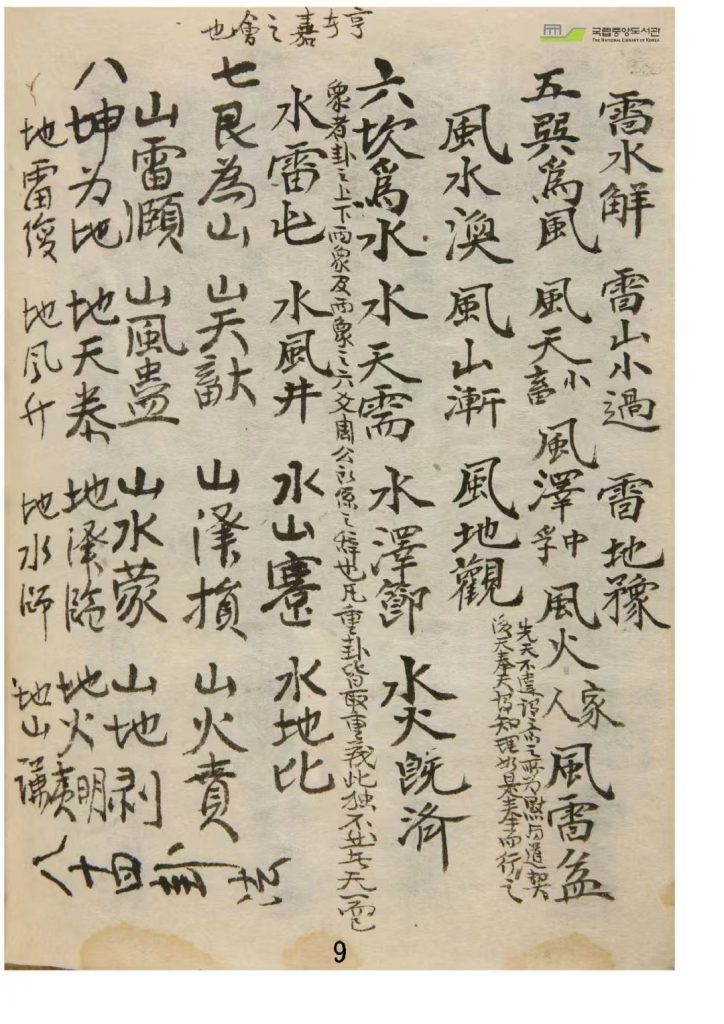 국립중앙도서관
THE NATIONAL LIBRARY OF KOREA
亨者嘉之會也
雷水解 雷山小過 雷地豫
五巽爲風 風天小畜 風澤中孚 風火家人 風雷益
風水渙 風山漸 風地觀
先天不違謂意之所爲黙與道契
後天奉天謂知理如是奉而行之
六坎爲水 水天需 水澤節 水火旣済
象者卦之上下兩象及兩象之六爻周公所係之辞也凡重卦皆取重義此独不然者天一而已
水雷屯 水風井 水山蹇 水地比
七艮為山 山天畜大 山澤損 山火賁
山雷頤 山風蠱 山水蒙 山地剥
八坤为地 地天泰 地澤臨 地火明夷
地雷復 地風升 地水師 地山謙